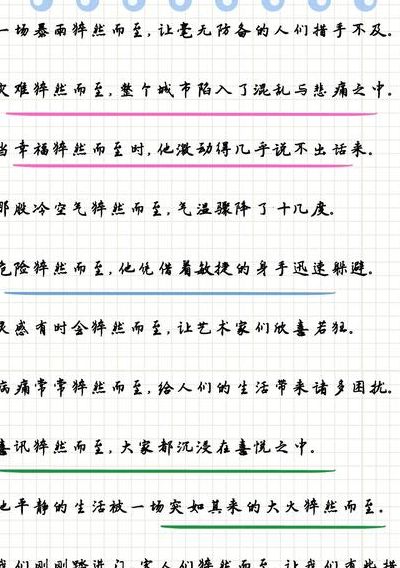 一场暴雨猝然而至,让毫无防备的人们措手不及。
灾难猝然而至,整个城市陷入了混乱与悲痛之中。
当幸福猝然而至时,他激动得几乎说不出话来。
那股冷空气猝然而至,气温骤降了十几度。
危险猝然而至,他凭借着敏捷的身手迅速躲避。
灵感有时会猝然而至,让艺术家们欣喜若狂。
病痛常常猝然而至,给人们的生活带来诸多困扰。
喜讯猝然而至,大家都沉浸在喜悦之中。
他平静的生活被一场突如其来的大火猝然而至。
我们刚刚踏进门,客人们猝然而至,让我们有些措